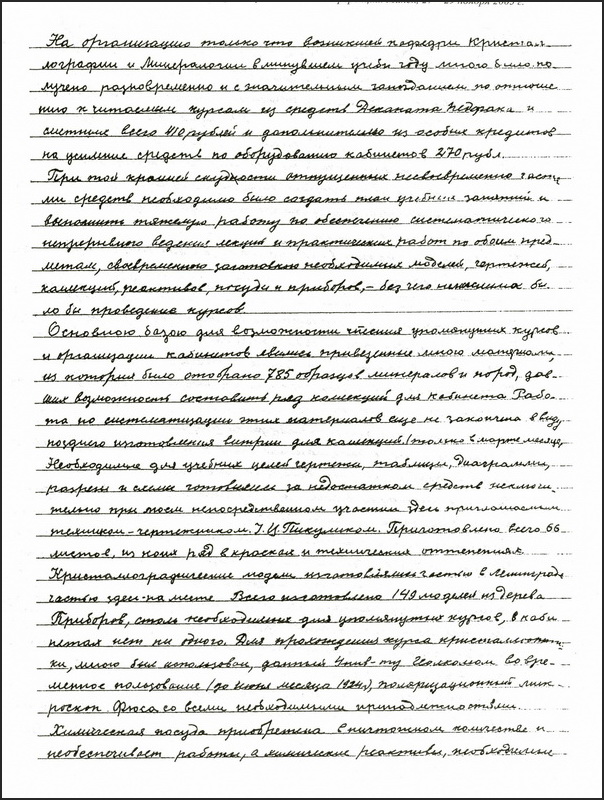 На организацию только что возникшей кафедры Кристал-
лографии и Минералогии в минувшем учебн году много было по-
лучено разновременно и с значительным запозданием по отноше-
нию к читаемым курсам из средств Деканата Педфака и
сметных всего 410 рублей и дополнительно из особых кредитов
на усиление средств по оборудованию кабинетов 270 рубл.
При той крайней скудности отпущенных несвоевременно частя-
ми средств необходимо было создать план учебных занятий и
выполнить тяжелую работу по обеспечению систематического
непрерывного ведения лекций и практических работ по обоим пред-
метам, своевременною заготовкою необходимых моделей, чертежей,
коллекций, реактивов, посуды и приборов, – без чего немыслимы бы-
ло бы проведение курсов.
Основною базою для возможности чтения упомянутых курсов
и организации кабинетов явились привезенные мною материалы,
из которых было отобрано 785 образцов минералов и пород, дав-
ших возможность составить ряд колекций для кабинета Рабо-
та по систематизации этих материалов еще не закончена в виду
позднего изготовления витрин для калекций (только в марте месяце)
Необходимые для учебных целей чертежи, таблицы, диаграммы,
разрезы и схемы готовились за недостатком средств исключи-
тельно при моем непосредственном участии здесь приглашенным
техником-чертежником. І. И. Пикуликом. Приготовлено всего 66
листов, из коих ряд в красках и технических оттенениях
Кристалографические модели изготовлялись частью в Ленинграде
частью здесь-на месте Всего изготовлено 149 моделей из дерева
Приборов, столь необходимых для упомянутых курсов, в каби-
нетах нет ни одного. Для прохождения курса кристаллоопти-
ки, мною был использован, данный Унив-ту Исполкомом во вре-
менное пользование (до июня месяца 1924 г.), поляризационный мик-
роскоп Фюса со всеми необходимыми принадлежностями.
Химическая посуда приобретена в ничтожном количестве и
необеспечивает работы, а химические реактивы, необходимые